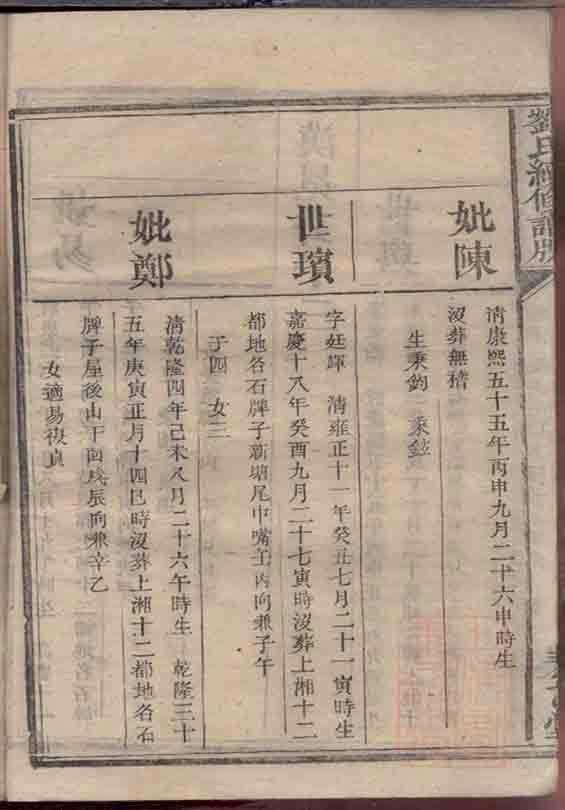 劉氏經修譜牒
妣陳
清康熙五十五年丙申九月二十六申時生
沒葬無稽
生秉鈞 秉鉉
世璸
字廷暉 清雍正十一年癸丑七月二十一寅時生
嘉慶十八年癸酉九月二十七寅時沒葬上湘十二
都地名石牌子新塘尾中嘴壬丙向兼子午
子四 女三
妣鄭
清乾隆四年己未八月二十六午時生 乾隆三十
五年庚寅正月十四巳時沒葬上湘十二都地名石
牌子屋後山下戌辰向兼辛乙
女適易